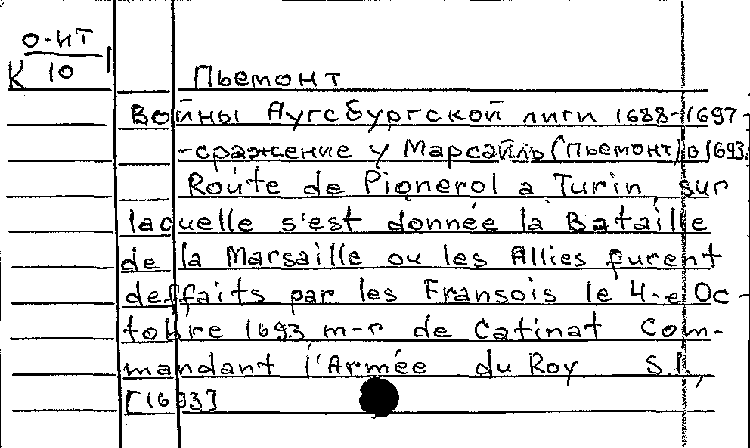 О-ИТ
К 10
Пьемонт
Войны Аугсбургской лиги 1688-1697
-сражение у Марсайль (Пьемонт) в 1693
Route de Pignerol a Turin, sur
laquelle s'est donnée la Bataille
de la Marsaille ou les Allies furent
deffaits par les Fransois le 4-e Oc-
tobre 1693 m-r de Catinat Com-
mandant l'Armée du Roy S.l.,
[1693]